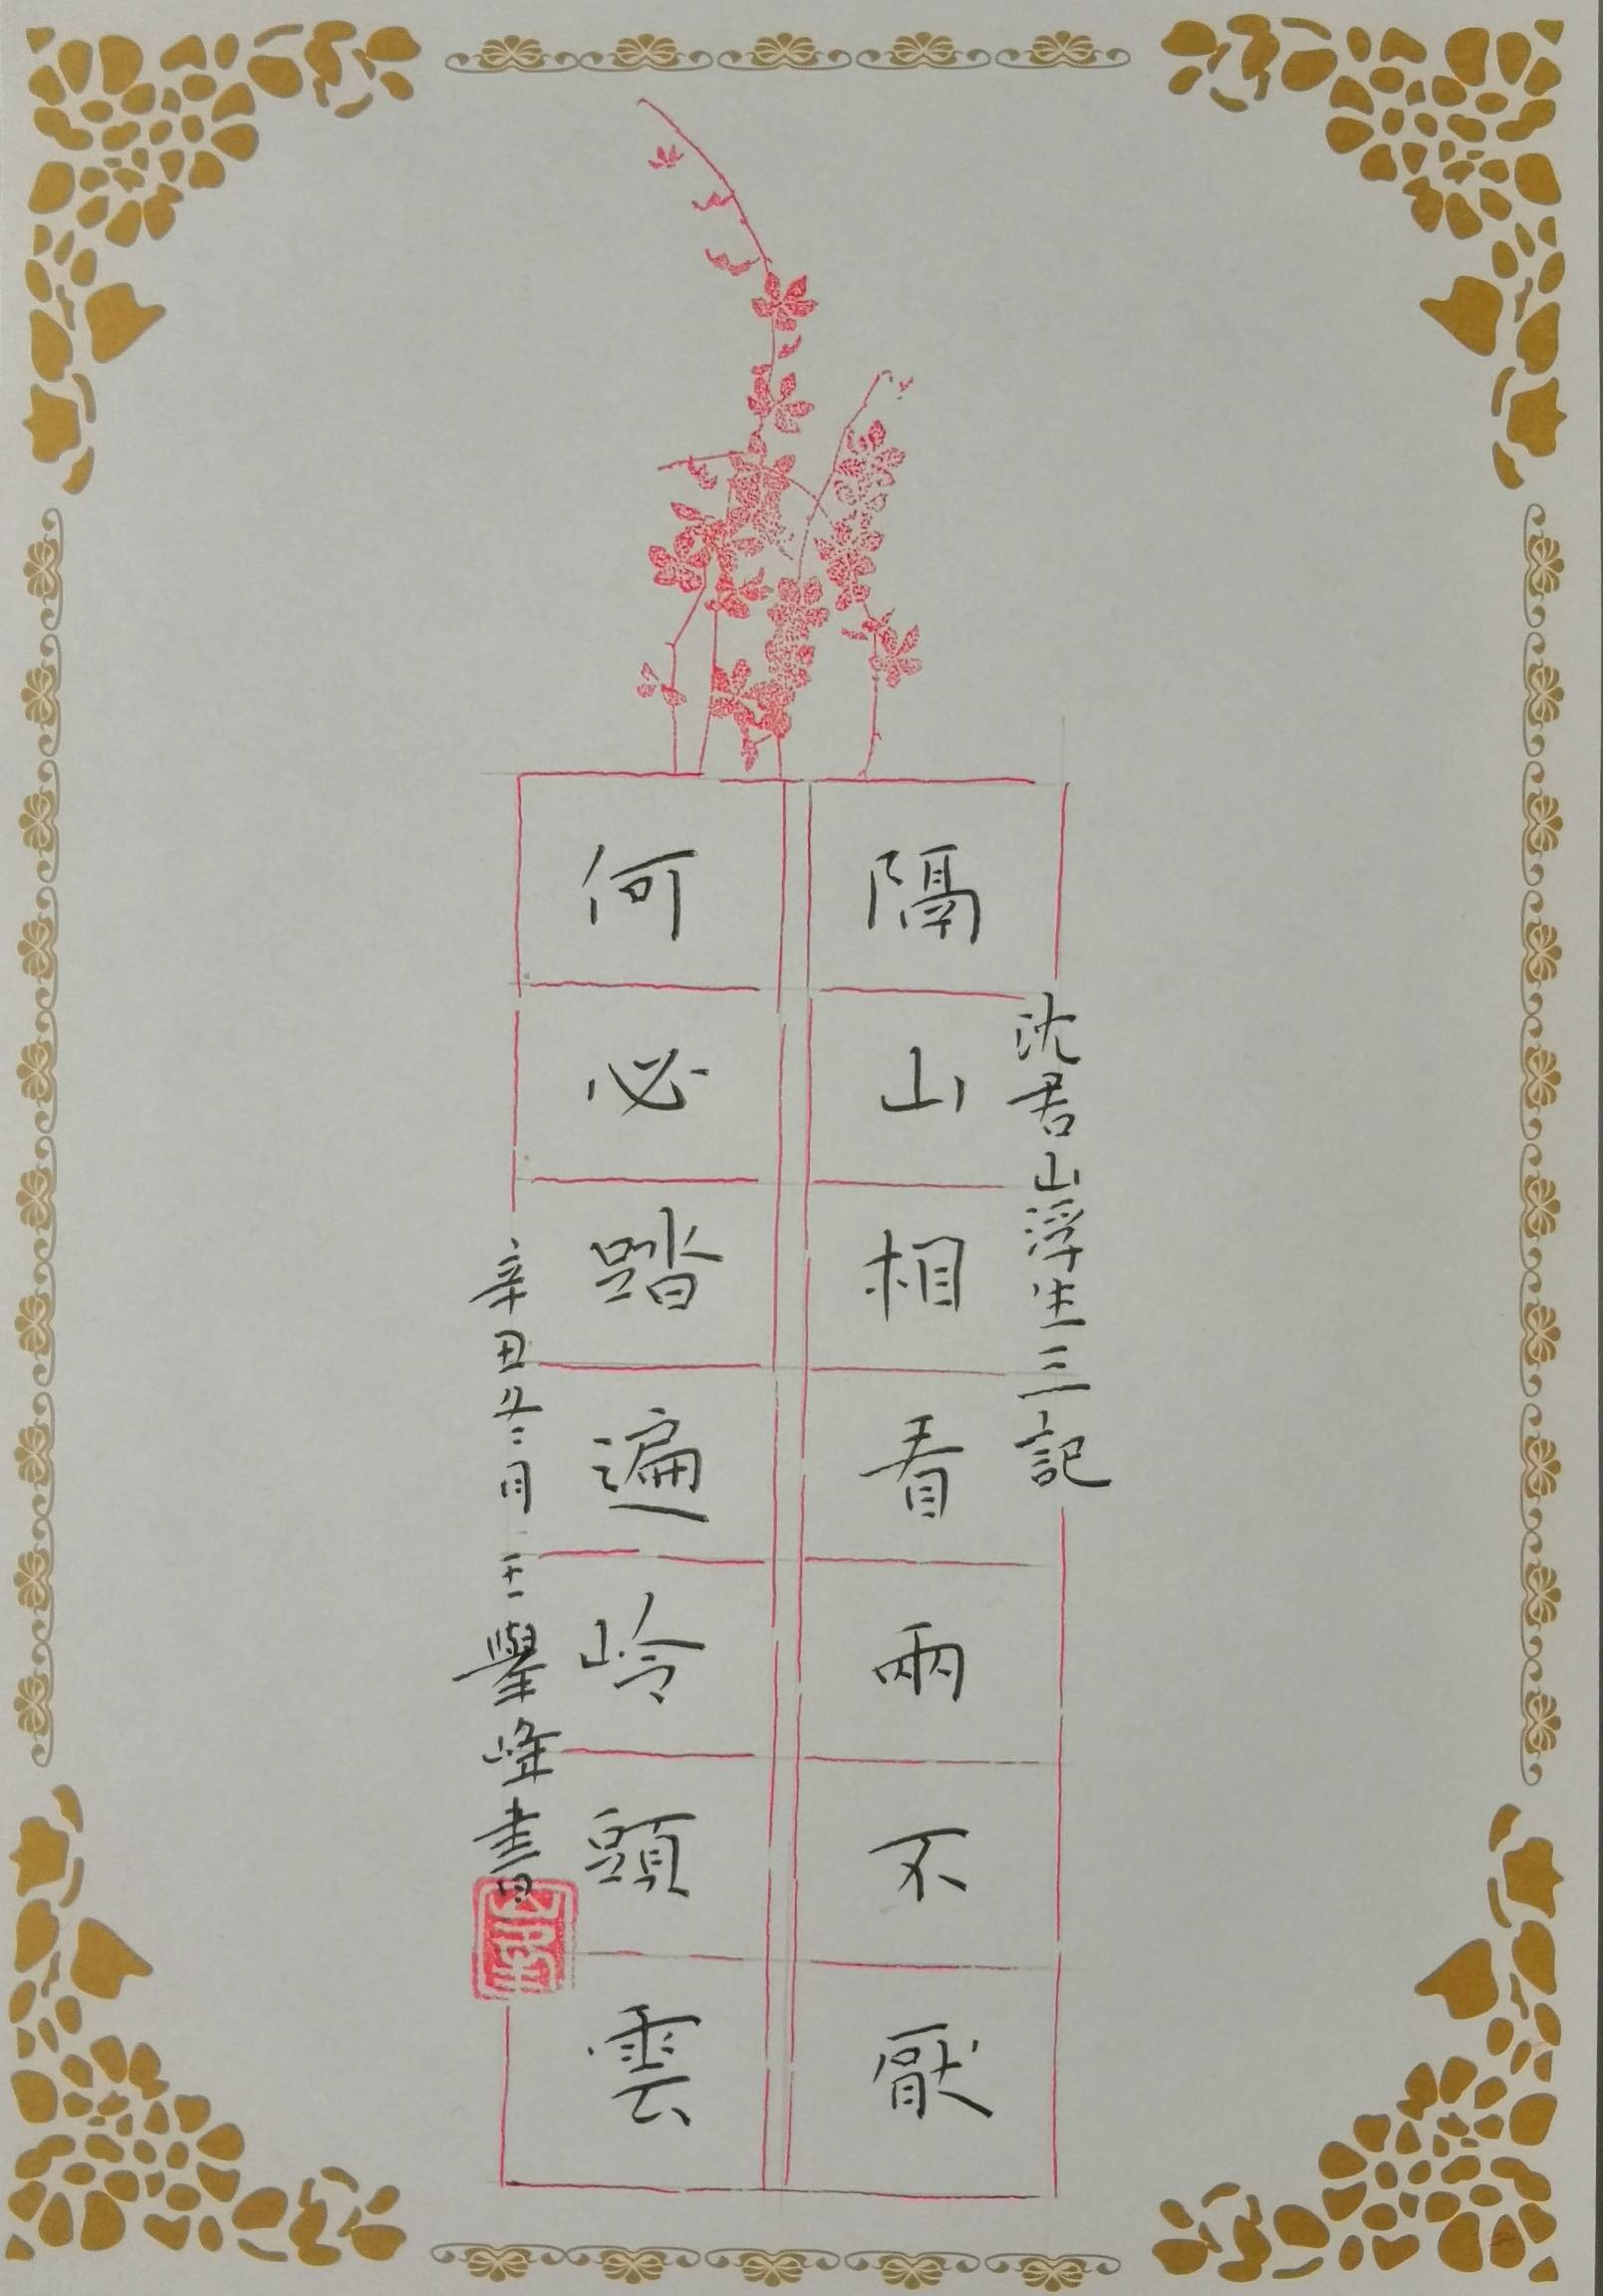 沈君山浮生三記
隔山相看兩不厭
何必踏遍岭頭雲
辛丑冬月 王舉峰書